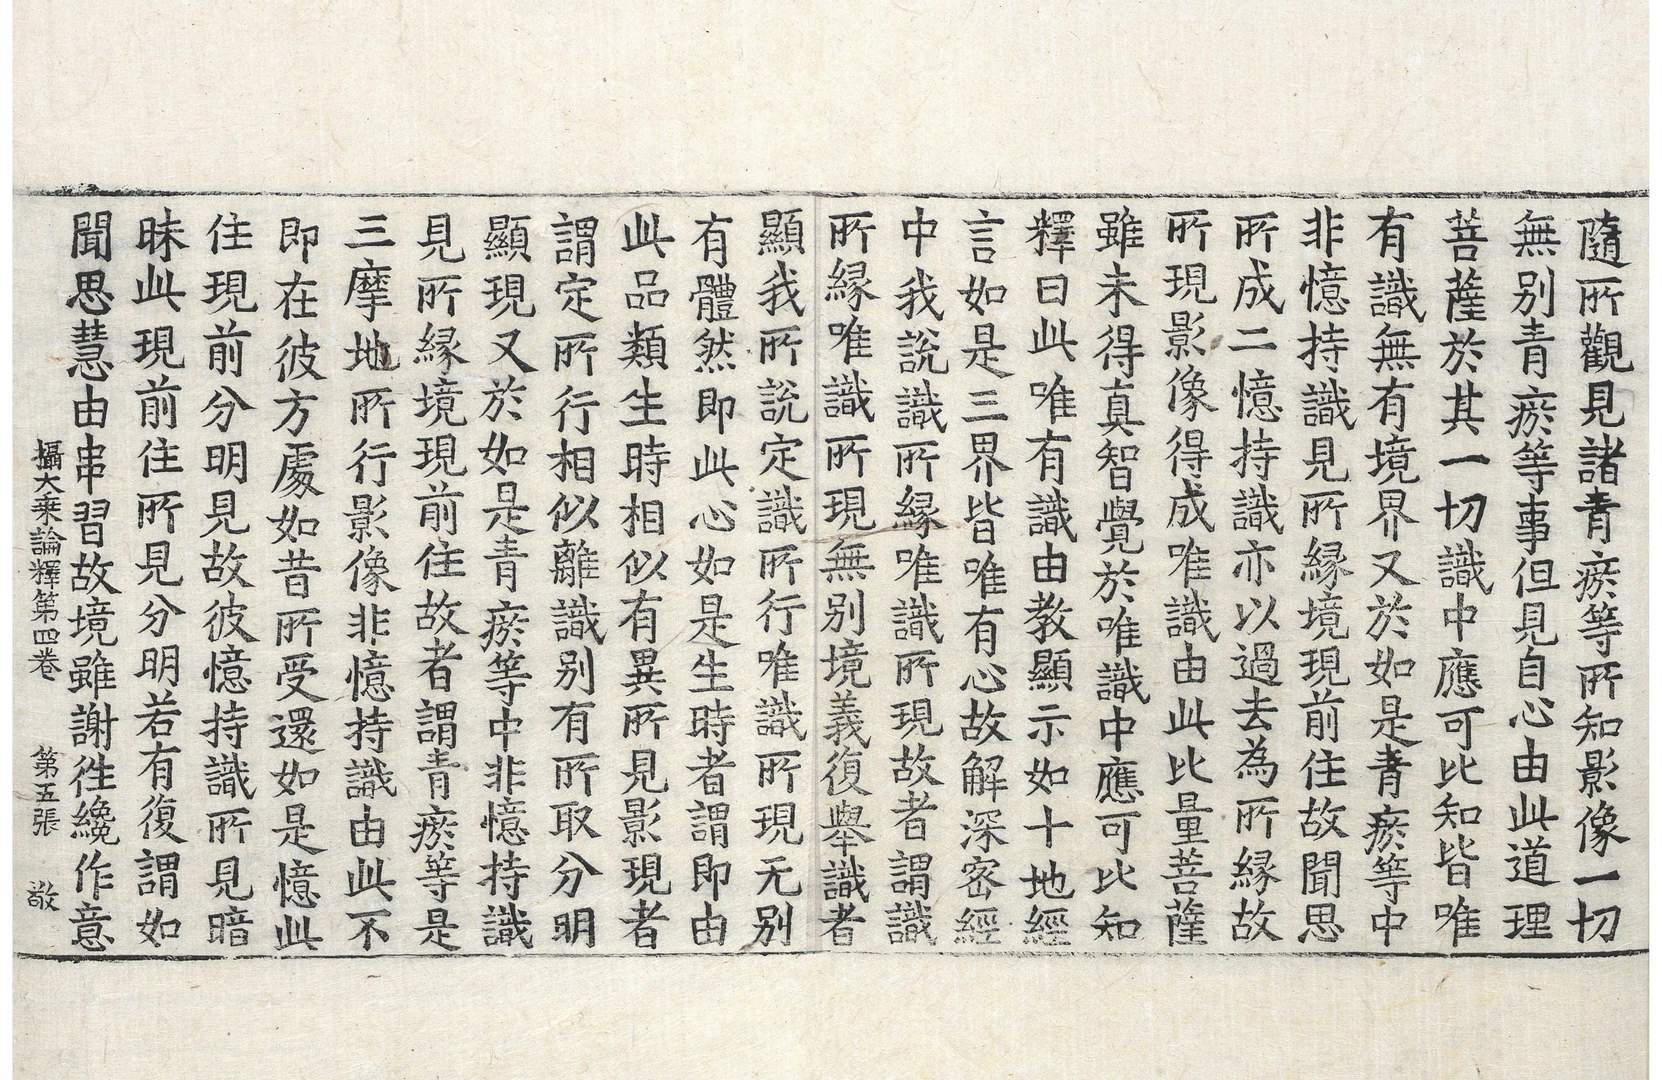 隨所觀見諸青瘀等所知影像一切
無别青瘀等事但見自心由此道理
菩薩於其一切識中應可比知皆唯
有識無有境界又於如是青瘀等中
非憶持識見所緣境現前住故聞思
所成二憶持識亦以過去為所緣故
所現影像得成唯識由此比量菩薩
雖未得真智覺於唯識中應可比知
釋曰此唯有識由教顯示如十地經
言如是三界皆唯有心故解深密經
中我說識所緣唯識所現故者謂識
所緣唯識所現無别境義復舉識者
顯我所說定識所行唯識所現无别
有體然即此心如是生時者謂即由
此品類生時相似有異所見影現者
謂定所行相似離識别有所取分明
顯現又於如是青瘀等中非憶持識
見所緣境現前住故者謂青瘀等是
三摩地所行影像非憶持識由此不
即在彼方處如昔所受還如是憶此
住現前分明見故彼憶持識所見暗
昧此現前住所見分明若有復謂如
聞思慧由串習故境雖謝往纔作意
攝大乘論釋第四卷　第五張　敢